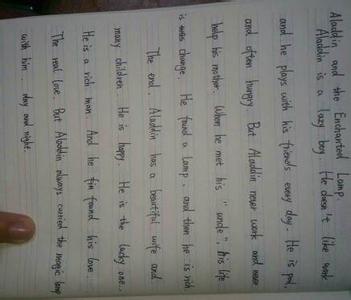 Aladdin and the Enchanted Lamp
Aladdin is a lazy boy. He doesn't like work
and he plays with his friends every day. He is poor,
and often hungry. But Aladdin never work and never
help his mother. When he met his "uncle", his life
is change. He found a lamp, and then he is rich.
The end, Aladdin has a beautiful wife and
many children. He is happy. He is the lucky one.
He is a rich man. And he found his love.
The real love. But Aladdin always carried the magic lamp
with him day and night.